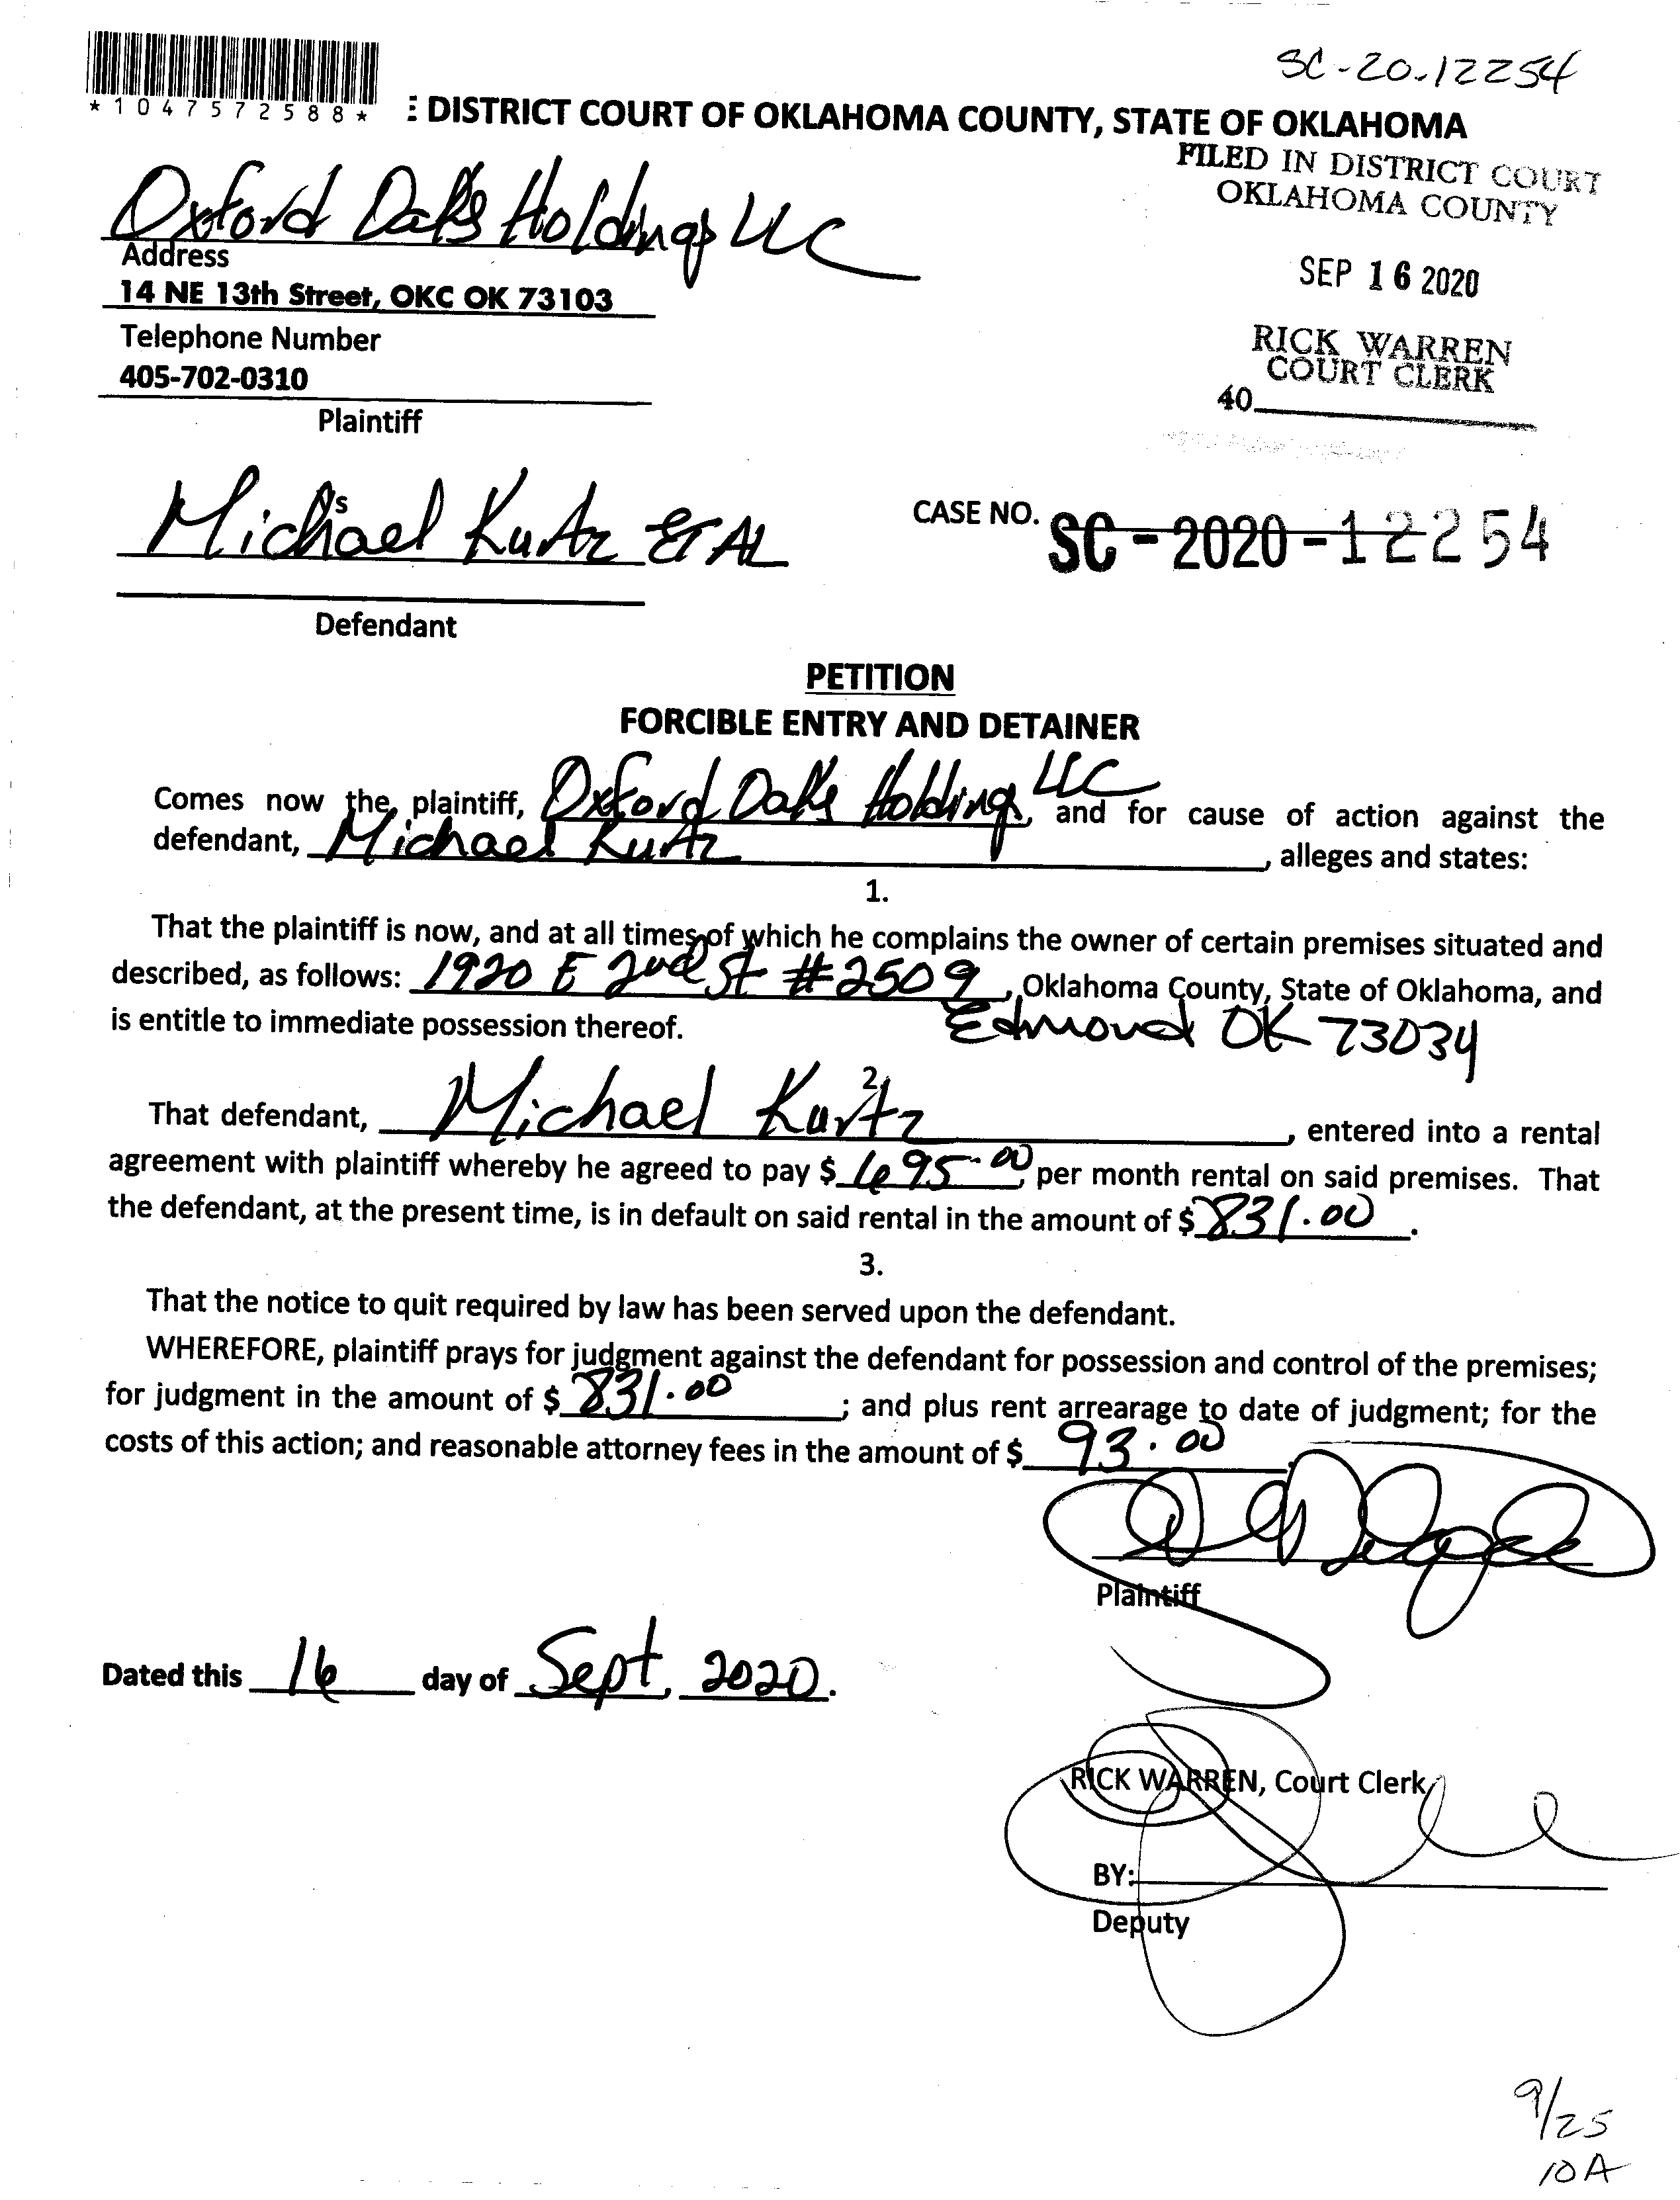 SC-20-12254
*1047572588*
: DISTRICT COURT OF OKLAHOMA COUNTY, STATE OF OKLAHOMA
FILED IN DISTRICT COURT
OKLAHOMA COUNTY
Oxford Oaks Holdings LLC
Address
14 NE 13th Street, OKC OK 73103
SEP 16 2020
Telephone Number
405-702-0310
RICK WARREN
COURT CLERK
40
Plaintiff
vs
Michael Kurtz ET AL
CASE NO. SC-2020-12254
Defendant
PETITION
FORCIBLE ENTRY AND DETAINER
Comes now the, plaintiff, Oxford Oaks Holding LLC, and for cause of action against the
defendant, Michael Kurtz, alleges and states:
1.
That the plaintiff is now, and at all times of which he complains the owner of certain premises situated and
described, as follows: 1920 E 2nd St #2509, Oklahoma County, State of Oklahoma, and
is entitle to immediate possession thereof. Edmond OK 73034
2.
That defendant, Michael Kurtz, entered into a rental
agreement with plaintiff whereby he agreed to pay $ 695.00, per month rental on said premises. That
the defendant, at the present time, is in default on said rental in the amount of $ 831.00.
3.
That the notice to quit required by law has been served upon the defendant.
WHEREFORE, plaintiff prays for judgment against the defendant for possession and control of the premises;
for judgment in the amount of $ 831.00; and plus rent arrearage to date of judgment; for the
costs of this action; and reasonable attorney fees in the amount of $ 93.00.
Plaintiff
Dated this 16 day of Sept, 2020.
RICK WARREN, Court Clerk
BY:
Deputy
9/25
10A